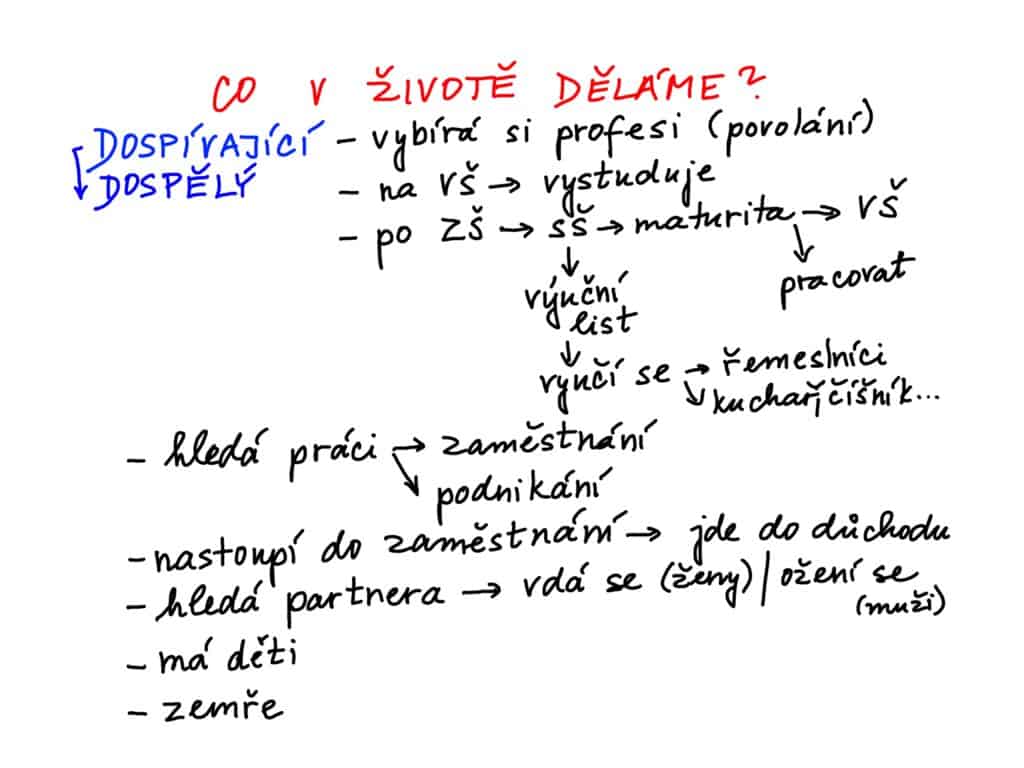 CO V ŽIVOTĚ DĚLÁME?
DOSPÍVAJÍCÍ - vybírá si profesi (povolání)
DOSPĚLÝ - na VŠ → vystuduje
- po ZŠ → SŠ → maturita → VŠ
↓ ↓ pracovat
výuční
list
↓
vyučí se → řemeslníci
↘ kuchař, číšník...
- hledá práci → zaměstnání
↘ podnikání
- nastoupí do zaměstnání → jde do důchodu
- hledá partnera → vdá se (ženy) / ožení se
(muži)
- má děti
- zemře